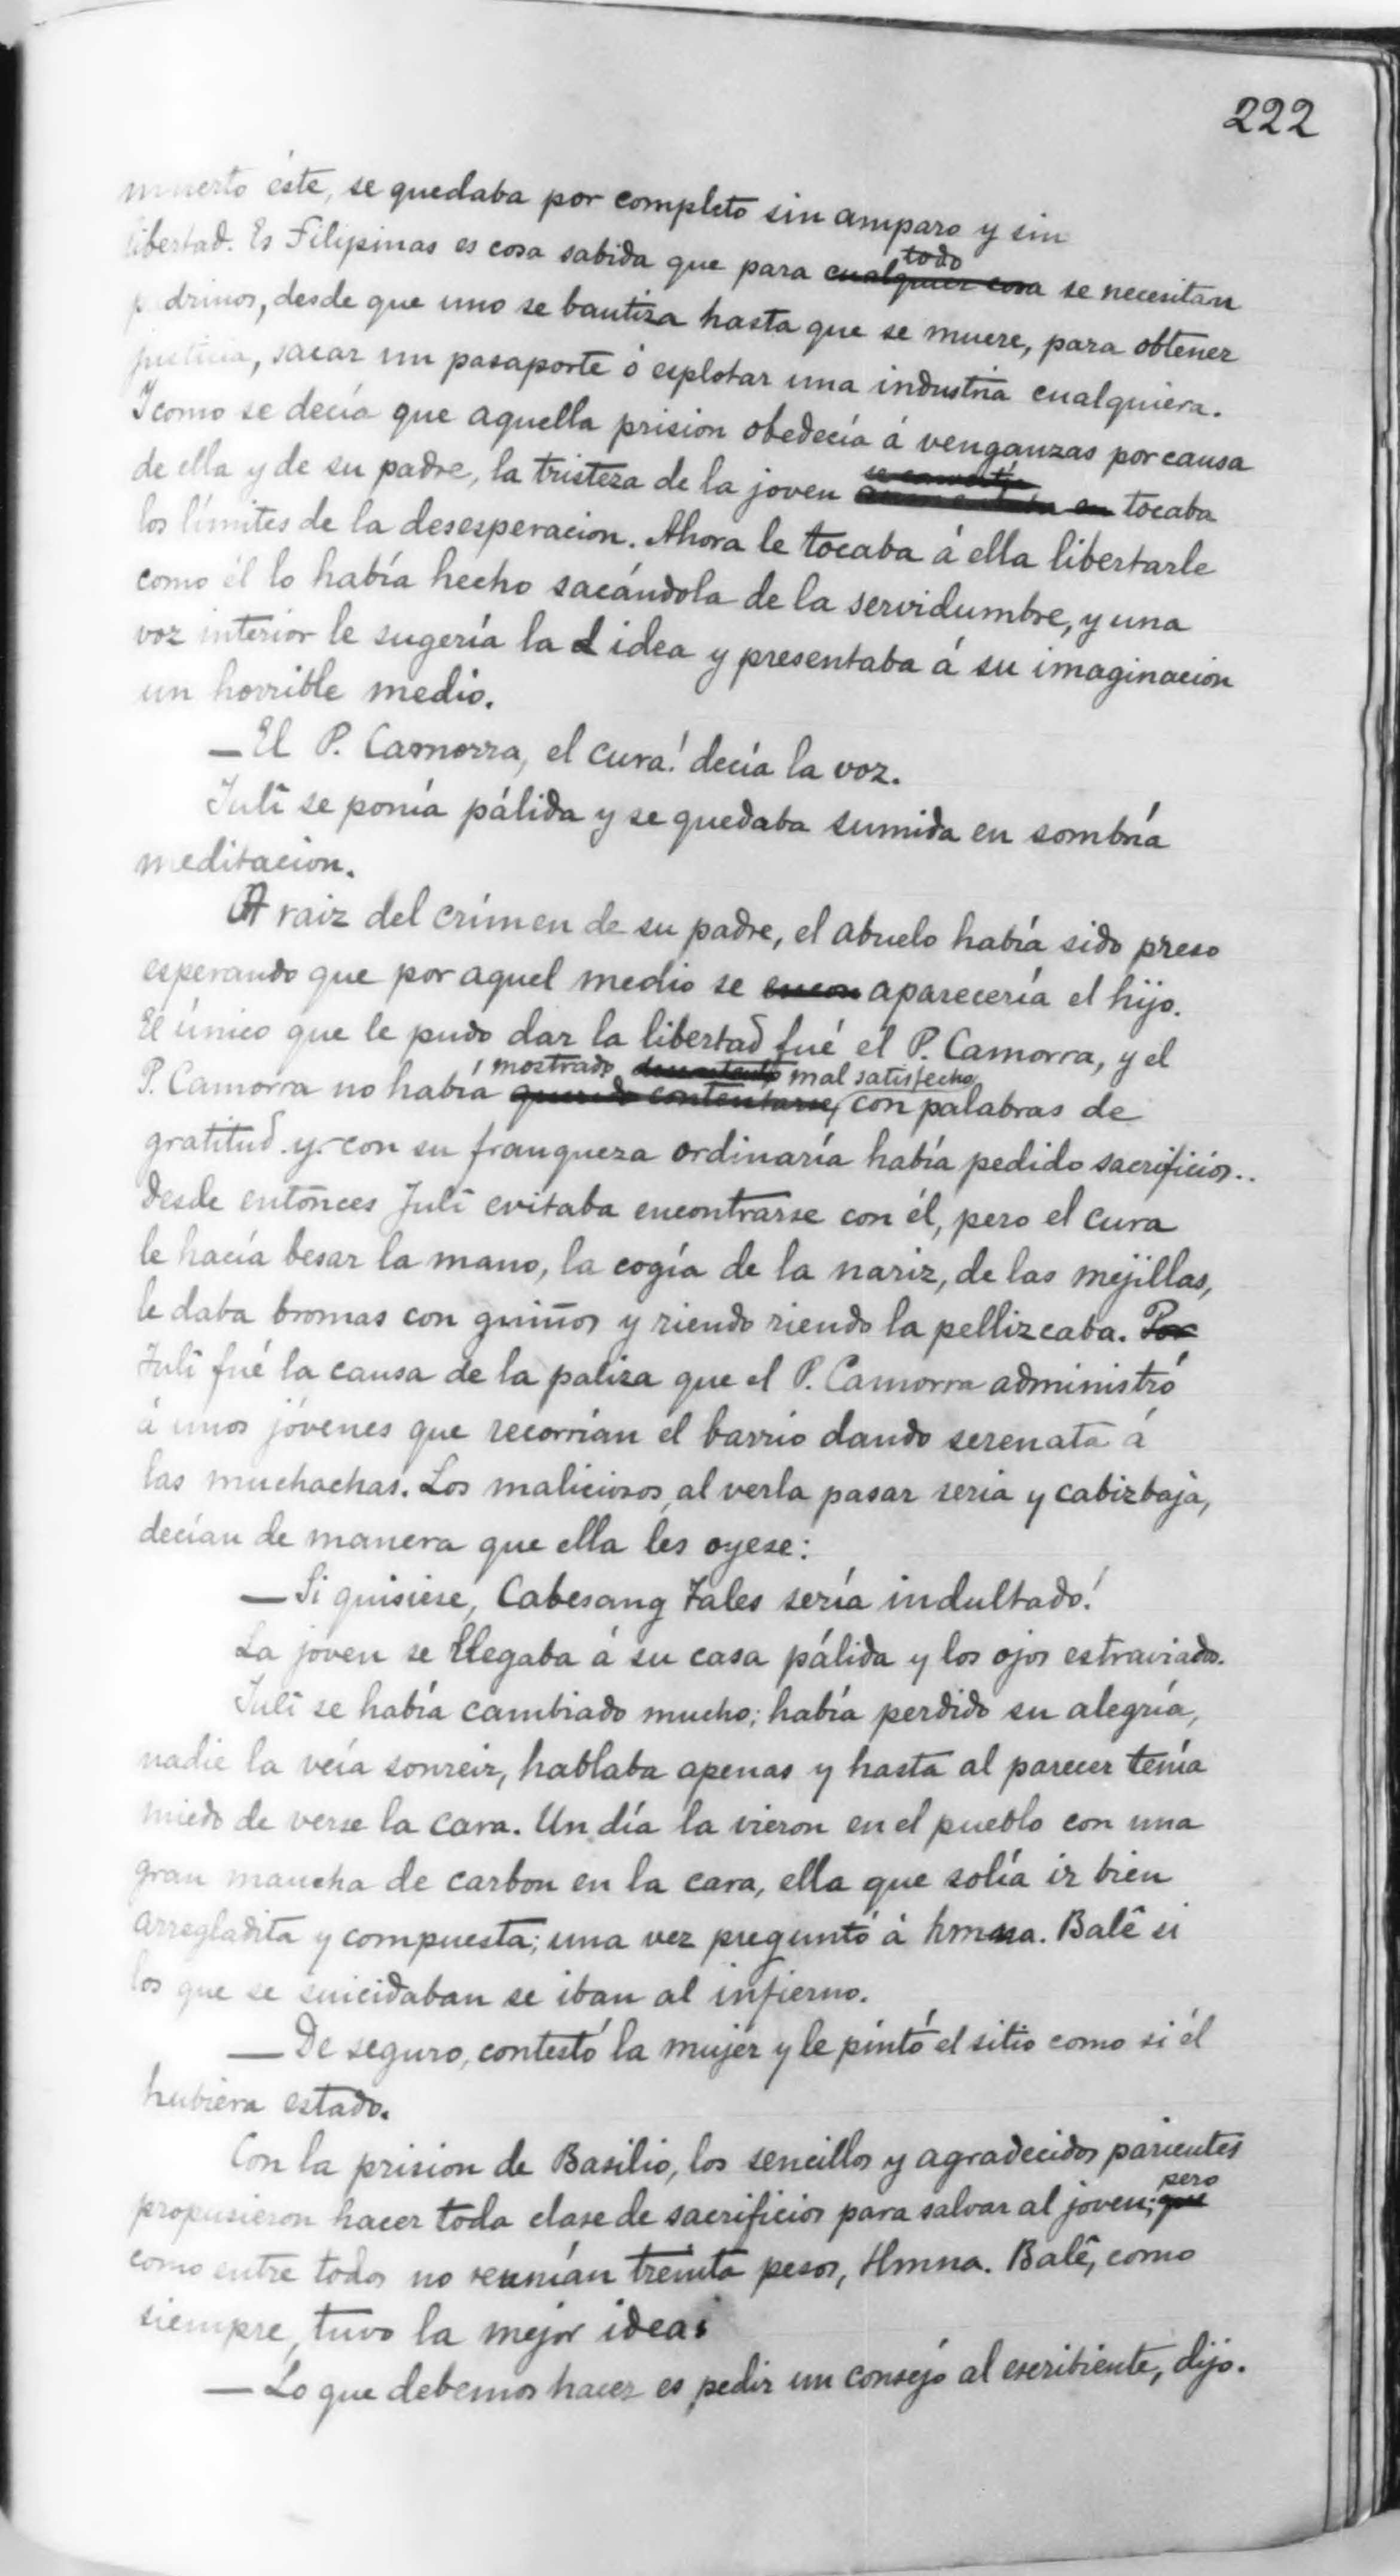 222
muerto éste, se quedaba por completo sin amparo y sin
libertad. Es Filipinas es cosa sabida que para cualquier cosa todo se necesitan
padrinos, desde que uno se bautiza hasta que se muere, para obtener
justicia, sacar un pasaporte ó esplotar una industria cualquiera.
Y como se decía que aquella prision obedecía á venganzas por causa
de ella y de su padre, la tristeza de la joven se convertía en tocaba
los límites de la desesperacion. Ahora le tocaba á ella libertarle
como él lo había hecho sacándola de la servidumbre, y una
voz interior le sugería la idea y presentaba á su imaginacion
un horrible medio.
—El P. Camorra, el cura! decía la voz.
Julî se ponía pálida y se quedaba sumida en sombría
meditacion.
A raiz del crímen de su padre, el abuelo había sido preso
esperando que por aquel medio se aparecería el hijo.
El único que le pudo dar la libertad fué el P. Camorra, y el
P. Camorra no había querido contentarse, mostrado descontento mal satisfecho con palabras de
gratitud y con su franqueza ordinaría había pedido sacrificios..
Desde entónces Julî evitaba encontrarse con él, pero el cura
le hacía besar la mano, la cogía de la nariz, de las mejillas,
le daba bromas con guiños y riendo riendo la pellizcaba. Por
Julî fué la causa de la paliza que el P. Camorra administró
á unos jóvenes que recorrían el barrio dando serenata á
las muchachas. Los maliciosos, al verla pasar seria y cabizbaja,
decían de manera que ella les oyese:
—Si quisiese, Cabesang Tales sería indultado!
La joven se llegaba á su casa pálida y los ojos estraviados.
Julî se había cambiado mucho; había perdido su alegría,
nadie la veía sonreir, hablaba apenas y hasta al parecer tenía
miedo de verse la cara. Un día la vieron en el pueblo con una
gran mancha de carbon en la cara, ella que solía ir bien
arregladita y compuesta; una vez preguntó á hmna. Balê si
los que se suicidaban se iban al infierno.
—De seguro, contestó la mujer y le pintó el sitio como si él
hubiera estado.
Con la prision de Basilio, los sencillos y agradecidos parientes
propusieron hacer toda clase de sacrificios para salvar al joven; que pero
como entre todos no reunían treinta pesos, Hmna. Balê, como
siempre, tuvo la mejor idea:
—Lo que debemos hacer es pedir un consejo al escribiente, dijo.